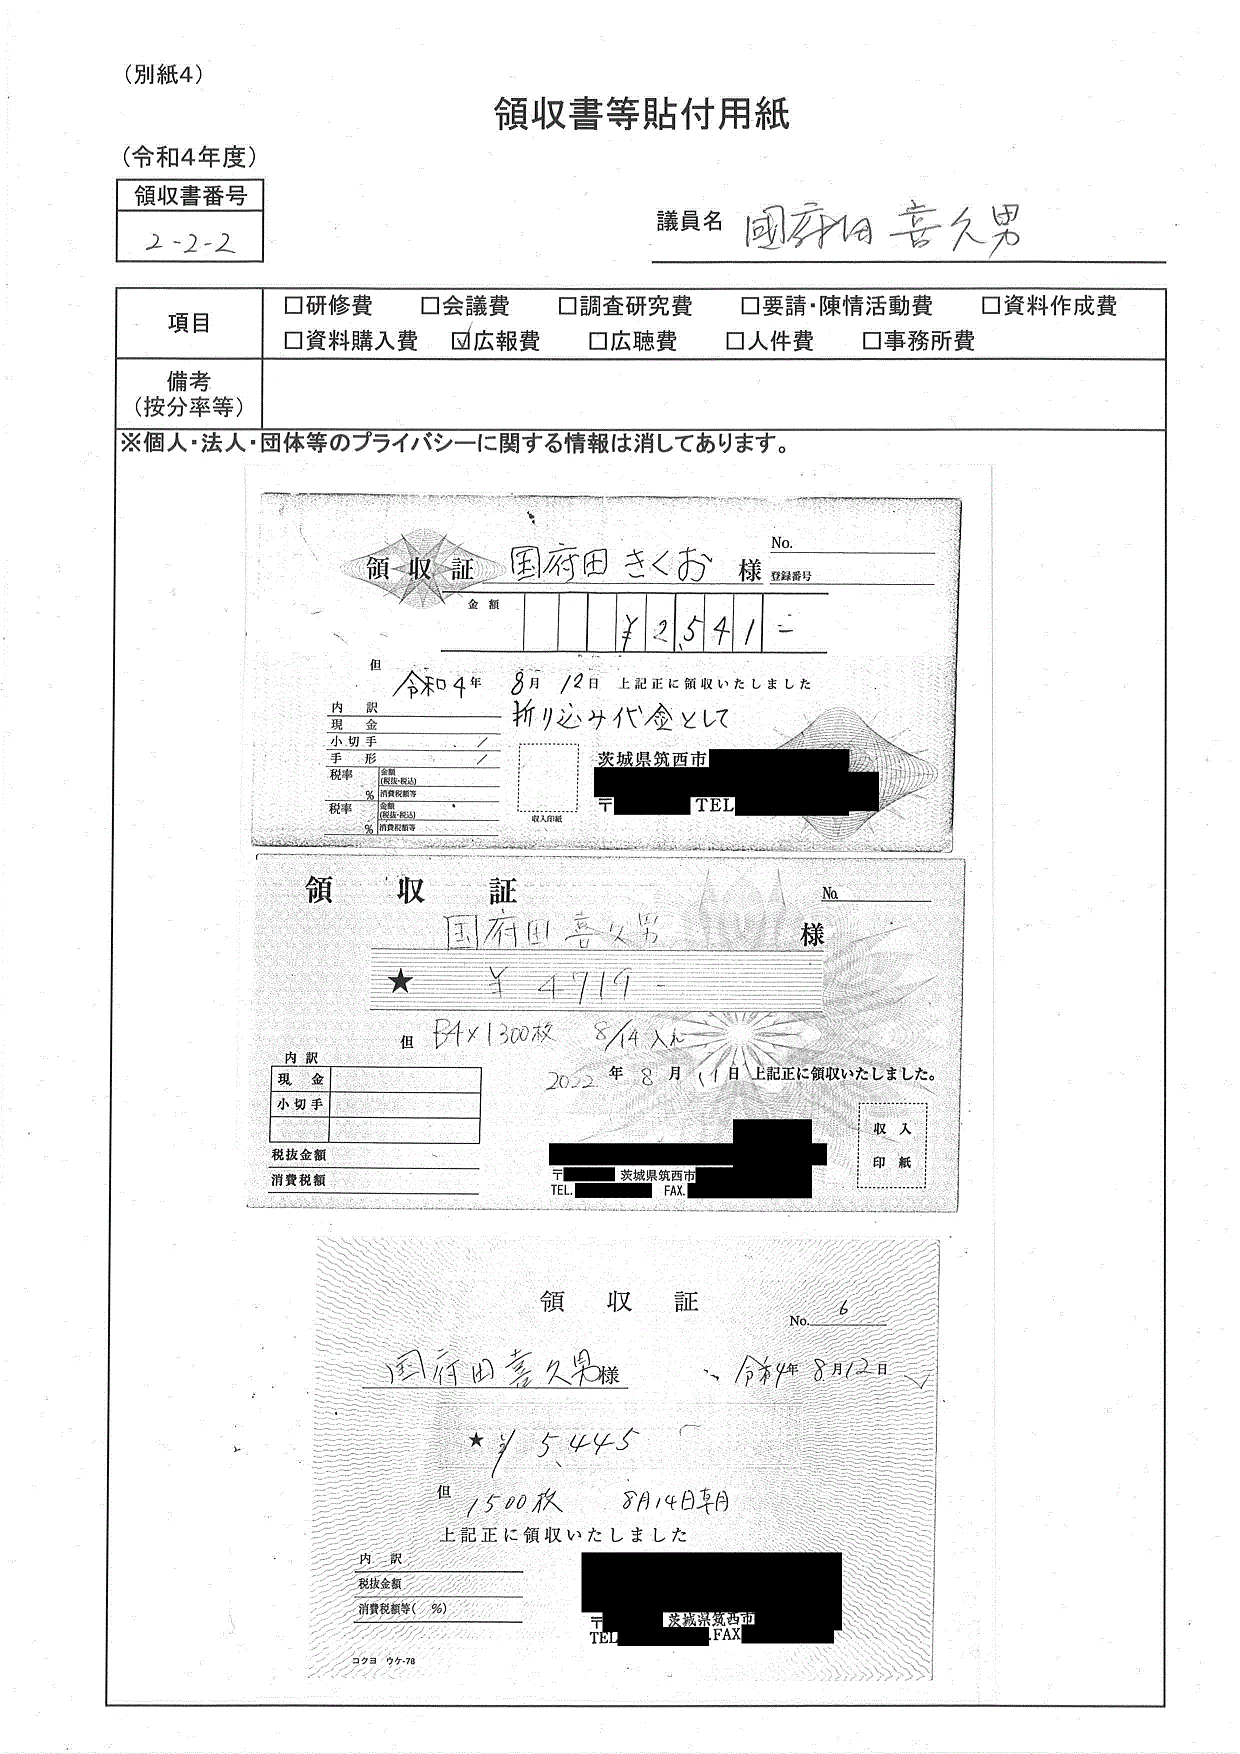 （別紙４）
領収書等貼付用紙
（令和４年度）
領収書番号
2-2-2
議員名 國府田 喜久男
項目
□研修費 □会議費 □調査研究費 □要請・陳情活動費 □資料作成費
□資料購入費 ☑広報費 □広聴費 □人件費 □事務所費
備考
（按分率等）
※個人・法人・団体等のプライバシーに関する情報は消してあります。
領収証 国府田 きくお 様
No.
登録番号
金額
¥2,541-
但 令和4年 8月 12日 上記正に領収いたしました
折り込み代金として
内訳
現金
小切手
手形
税率 金額(税抜・税込)
% 消費税額等
税率 金額(税抜・税込)
% 消費税額等
収入印紙
茨城県筑西市
〒 TEL
領収証
No.
国府田 喜久男 様
★ ¥4719-
但 B4×1300枚 8/14入れ
2022年 8月 11日 上記正に領収いたしました。
内訳
現金
小切手
税抜金額
消費税額
収入
印紙
〒 茨城県筑西市
TEL. FAX.
領収証
No. 6
国府田 喜久男様 令和4年 8月12日
★ ¥5,445
但 1500枚 8月14日朝月
上記正に領収いたしました
内訳
税抜金額
消費税額等( %)
〒 茨城県筑西市
TEL .FAX
コクヨ ウケ-78